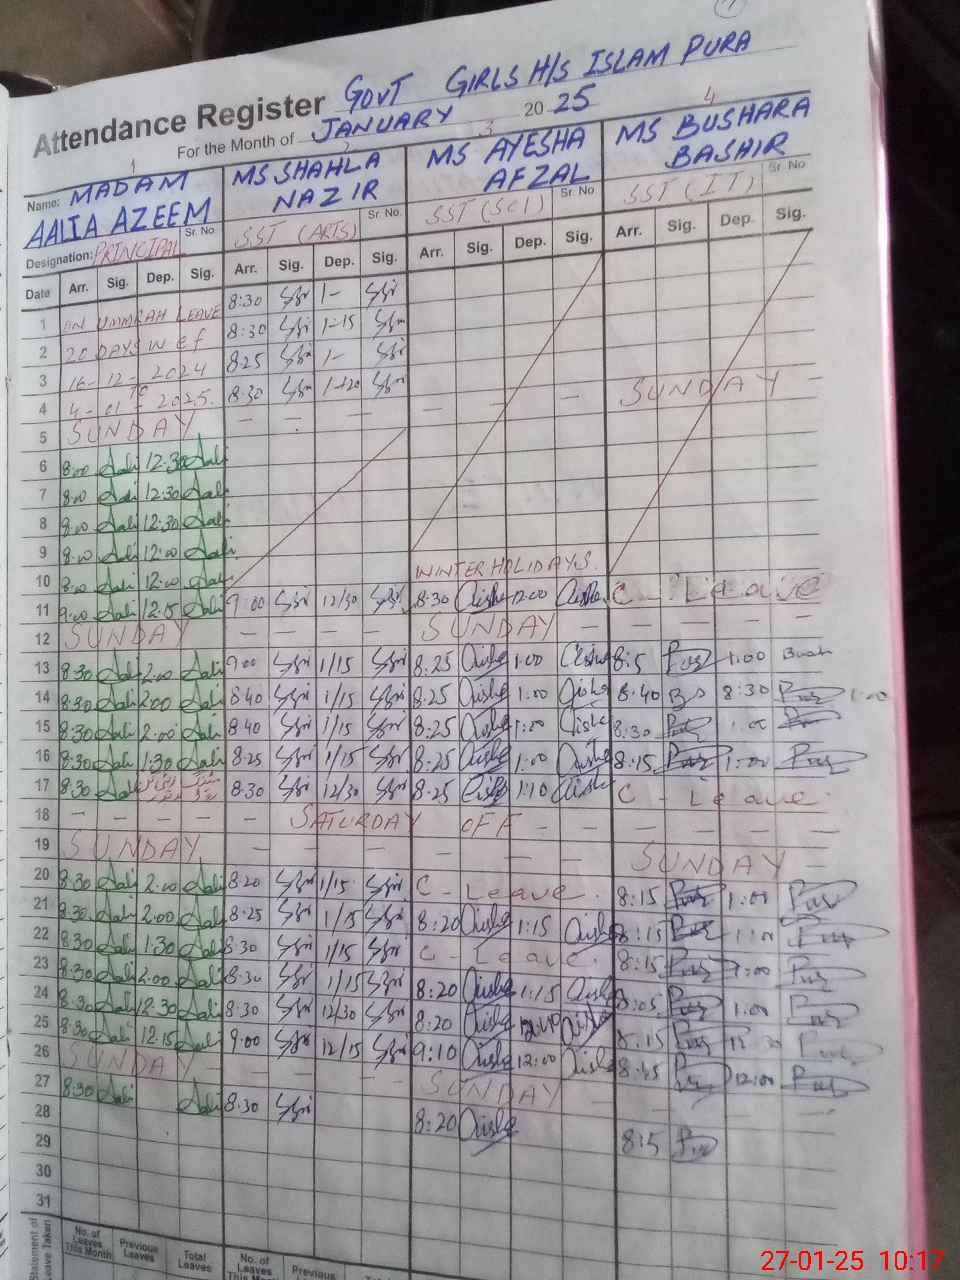 1
Attendance Register GOVT GIRLS H/S ISLAM PURA
For the Month of JANUARY 2025
1 2 3 4
Name: MADAM AALIA AZEEM MS SHAHLA NAZIR MS AYESHA AFZAL MS BUSHARA BASHIR
Sr. No. Sr. No. Sr. No. Sr. No.
Designation: PRINCIPAL SST (ARTS) SST (SCI) SST (IT)
Date Arr. Sig. Dep. Sig. Arr. Sig. Dep. Sig. Arr. Sig. Dep. Sig. Arr. Sig. Dep. Sig.
1 ON UMMRAH LEAVE 8:30 1-
2 20 DAYS W E f 8:30 1-15
3 16-12-2024 8:25 1-
4 TO 4-01-2025. 8:30 1-120 SUNDAY
5 SUNDAY - - - - - - - -
6 8:00 Aali 12:30 Aali
7 8:00 Aali 12:30 Aali
8 8:00 Aali 12:30 Aali
9 8:00 Aali 12:00 Aali
10 8:00 Aali 12:00 Aali WINTER HOLIDAYS.
11 9:00 Aali 12:15 Aali 9:00 12/30 8:30 Aisha 12:00 Aisha C - Leave
12 SUNDAY - - - - SUNDAY - - - -
13 8:30 Aali 2:00 Aali 9:00 1/15 8:25 Aisha 1:00 Aisha 8:5 1:00 Bush
14 8:30 Aali 2:00 Aali 8:40 1/15 8:25 Aisha 1:00 Aisha 8:40 8:30 1:00
15 8:30 Aali 2:00 Aali 8:40 1/15 8:25 Aisha 1:00 Aisha 8:30 1:00
16 8:30 Aali 1:30 Aali 8:25 1/15 8:25 Aisha 1:00 Aisha 8:15 1:00
17 8:30 Aali 8:30 12/30 8:25 Aisha 1:10 Aisha C - Leave.
18 - - - - SATURDAY OFF - - - - -
19 SUNDAY - - - - - - - - SUNDAY -
20 8:30 Aali 2:00 Aali 8:20 1/15 C - Leave. 8:15 1:00
21 8:30 Aali 2:00 Aali 8:25 1/15 8:20 Aisha 1:15 Aisha 8:15 1:00
22 8:30 Aali 1:30 Aali 8:30 1/15 C - Leave. 8:15 1:00
23 8:30 Aali 2:00 Aali 8:30 1/15 8:20 Aisha 1:15 Aisha 8:05 1:00
24 8:30 Aali 12:30 Aali 8:30 12/30 8:20 Aisha 12:40 Aisha 8:15 12:30
25 8:30 Aali 12:15 Aali 9:00 12/15 9:10 Aisha 12:00 Aisha 8:45 12:00
26 SUNDAY - - - - SUNDAY - - - -
27 8:30 Aali Aali 8:30 8:20 Aisha 8:5
28
29
30
31
Statement of Leave Taken
No. of Leaves This Month Previous Leaves Total Leaves No. of Leaves This Month Previous
27-01-25 10:17